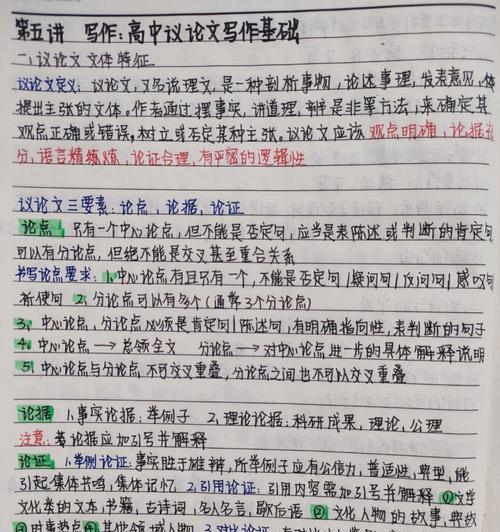 第五讲 写作:高中议论文写作基础
一、议论文文体特征
议论文定义:议论文,又名说理文,是一种剖析事物,论述事理,发表意见,
提出主张的文体。作者通过摆事实,讲道理,辨是非等方法,来确定某
观点正确或错误,树立或否定某种主张。议论文应该观点明确,论据充
分,语言精练,论证合理,有严密的逻辑性
议论文三要素:论点,论据,论证
论点:只有一个中心论点,但不能是否定句,应当是表陈述或判断的肯定句
可以有分论点,但绝不能是交叉甚至重合关系
书写论点要求:1、中心论点有且只有一个,不能是否定句|疑问句|反问句|感叹句
祈使句 2、分论点可以有多个(通常3个分论点)
3、中心论点,分论点必须是肯定句|陈述句,有明确指向性,表判断的句子
4、中心论点→总领全文 分论点→对中心论点进一步的具体解释说明
5、中心论点与分论点不可交叉重叠,分论点之间也不可以交叉重叠
论据 1、事实论据:举例子 2、理论论据:科研成果,理论,公理
注意:若论据应加引号并解释
论证 1、举例论证:事实胜于雄辩,所举例子应有公信力,普适性,典型,能
引起集体共鸣,集体记忆 2、引用论证:引用内容需加引号并解释 ①文学
文化类的文本,书籍,古诗词,名人名言,歇后语 ②文化人物的故事,典故
③时事热点 ④其他领域人物 3、对比论证: